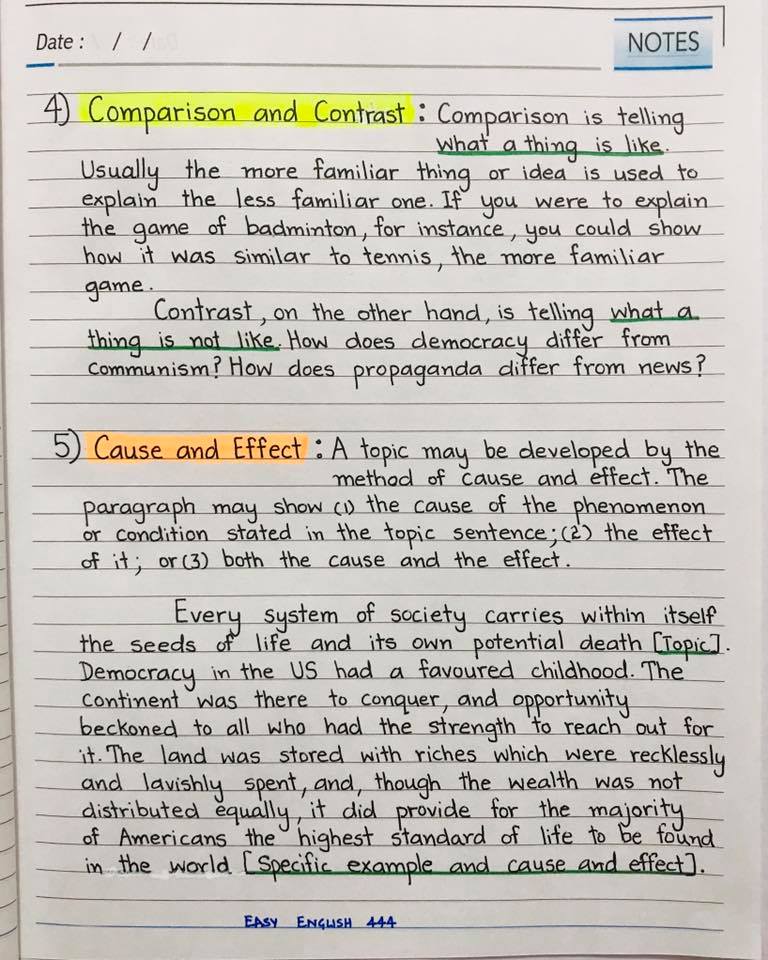 Date : / /
NOTES
4) Comparison and Contrast : Comparison is telling
what a thing is like.
Usually the more familiar thing or idea is used to
explain the less familiar one. If you were to explain
the game of badminton, for instance, you could show
how it was similar to tennis, the more familiar
game.
Contrast, on the other hand, is telling what a
thing is not like. How does democracy differ from
communism? How does propaganda differ from news?
5) Cause and Effect : A topic may be developed by the
method of cause and effect. The
paragraph may show (1) the cause of the phenomenon
or condition stated in the topic sentence; (2) the effect
of it; or (3) both the cause and the effect.
Every system of society carries within itself
the seeds of life and its own potential death [Topic].
Democracy in the US had a favoured childhood. The
continent was there to conquer, and opportunity
beckoned to all who had the strength to reach out for
it. The land was stored with riches which were recklessly
and lavishly spent, and, though the wealth was not
distributed equally, it did provide for the majority
of Americans the highest standard of life to be found
in the world [Specific example and cause and effect].
EASY ENGLISH 444